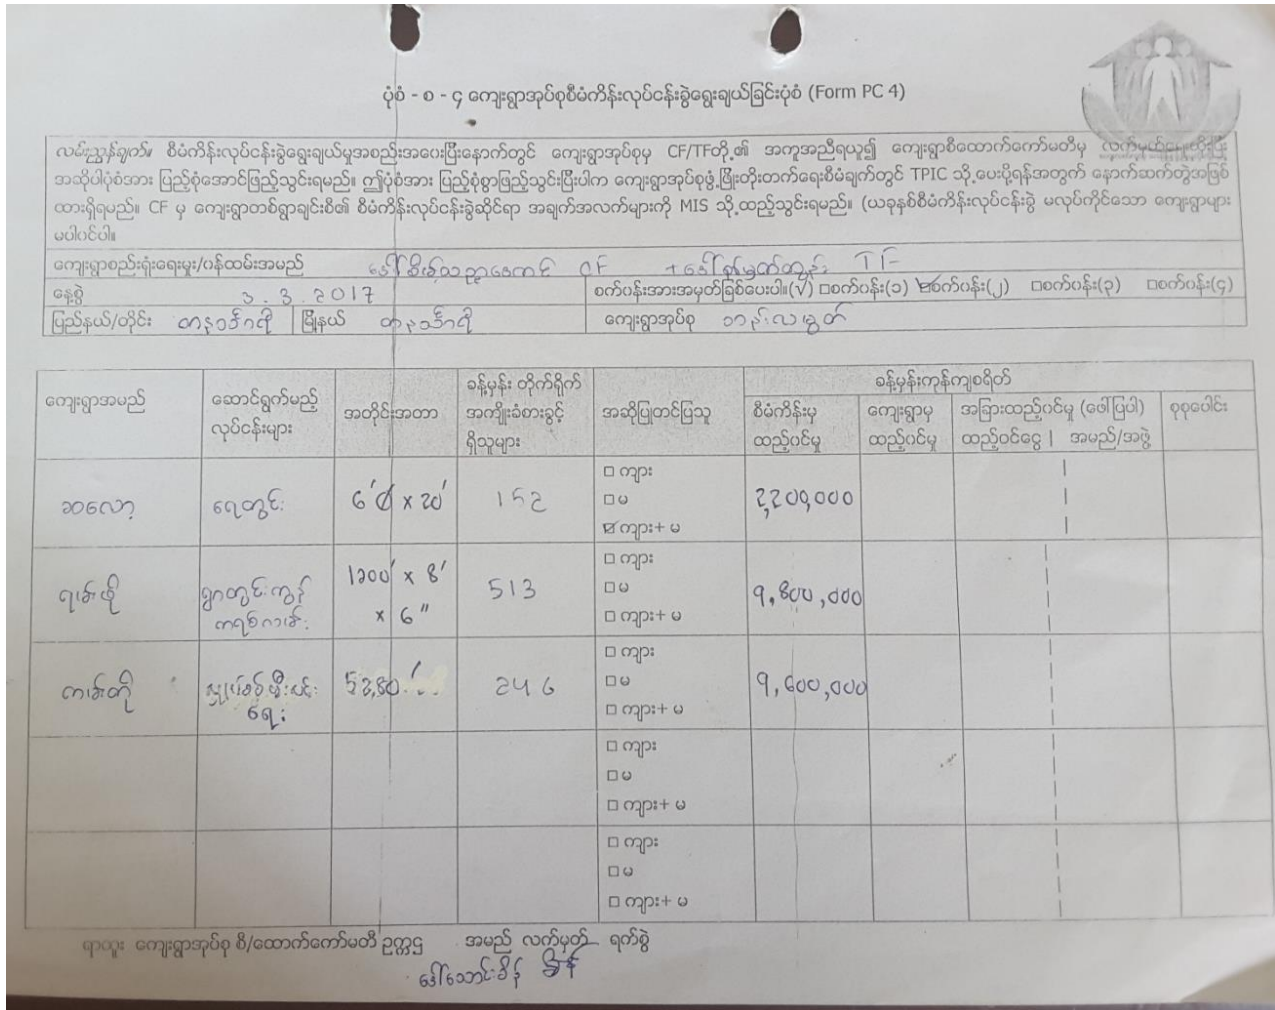 ပုံစံ - စ - ၄ ကျေးရွာအုပ်စုစီမံကိန်းလုပ်ငန်းခွဲရွေးချယ်ခြင်းပုံစံ (Form PC 4)
လမ်းညွှန်ချက်။ စီမံကိန်းလုပ်ငန်းခွဲရွေးချယ်မှုအစည်းအဝေးပြီးနောက်တွင် ကျေးရွာအုပ်စုမှ CF/TFတို့၏ အကူအညီရယူ၍ ကျေးရွာစီထောက်ကော်မတီမှ
အဆိုပါပုံစံအား ပြည့်စုံအောင်ဖြည့်သွင်းရမည်။ ဤပုံစံအား ပြည့်စုံစွာဖြည့်သွင်းပြီးပါက ကျေးရွာအုပ်စုဖွံ့ဖြိုးတိုးတက်ရေးစီမံချက်တွင် TPIC သို့ပေးပို့ရန်အတွက် နောက်ဆက်တွဲအဖြစ်
ထားရှိရမည်။ CF မှ ကျေးရွာတစ်ရွာချင်းစီ၏ စီမံကိန်းလုပ်ငန်းခွဲဆိုင်ရာ အချက်အလက်များကို MIS သို့ထည့်သွင်းရမည်။ (ယခုနှစ်စီမံကိန်းလုပ်ငန်းခွဲ မလုပ်ကိုင်သော ကျေးရွာများ
မပါဝင်ပါ။
ကျေးရွာစည်းရုံးရေးမှူး/ဝန်ထမ်းအမည် CF + TF
နေ့စွဲ 3.3.2017 စက်ဝန်းအားအမှတ်ခြစ်ပေးပါ။(√) □စက်ဝန်း(၁) ☑စက်ဝန်း(၂) □စက်ဝန်း(၃) □စက်ဝန်း(၄)
ပြည်နယ်/တိုင်း တနင်္သာရီ မြို့နယ် တနင်္သာရီ ကျေးရွာအုပ်စု
ခန့်မှန်းကုန်ကျစရိတ်
ကျေးရွာအမည် ဆောင်ရွက်မည့် လုပ်ငန်းများ အတိုင်းအတာ ခန့်မှန်း တိုက်ရိုက် အကျိုးခံစားခွင့် ရှိသူများ အဆိုပြုတင်ပြသူ စီမံကိန်းမှ ထည့်ဝင်မှု ကျေးရွာမှ ထည့်ဝင်မှု အခြားထည့်ဝင်မှု (ဖော်ပြပါ) ထည့်ဝင်ငွေ | အမည်/အဖွဲ့ စုစုပေါင်း
□ ကျား
ဆလော့ ရေတွင်း 6'0 x 20' 152 □ မ 2,200,000
☑ ကျား+ မ
□ ကျား
ရွာတွင်းကွန်ကရစ်လမ်း 1200' x 8' x 6" 513 □ မ 9,800,000
□ ကျား+ မ
□ ကျား
246 □ မ 9,600,000
□ ကျား+ မ
□ ကျား
□ မ
□ ကျား+ မ
□ ကျား
□ မ
□ ကျား+ မ
ရာထူး ကျေးရွာအုပ်စု စီ/ထောက်ကော်မတီ ဥက္ကဌ အမည် လက်မှတ် ရက်စွဲ